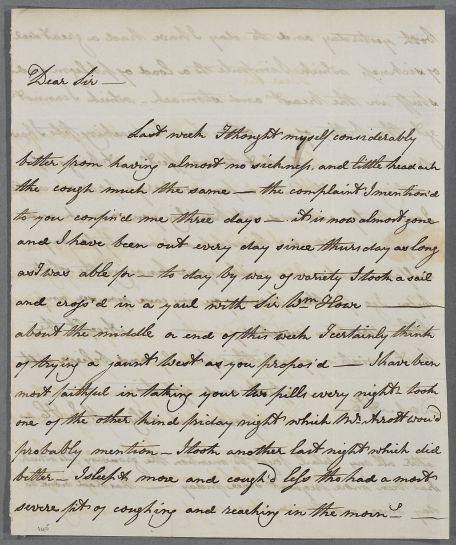 Dear Sir —
Last week I thought myself considerably
better from having almost no sickness, and little headach
the cough much the same — the complaint I mention'd
to you confin'd me three days — it is now almost gone
and I have been out every day since thursday as long
as I was able for — to day by way of variety I took a sail
and cross'd in a yaul with Sir Wm —
about the middle or end of this week I certainly think
of trying a jaunt West as you propos'd — I have been
most faithful in taking your two pills every night took
one of the other kind friday night which Mr. Arott wou'd
probably mention — I took another last night which did
better — I sleept more and cough'd less tho had a most
severe fit of coughing and reaching in the morng —